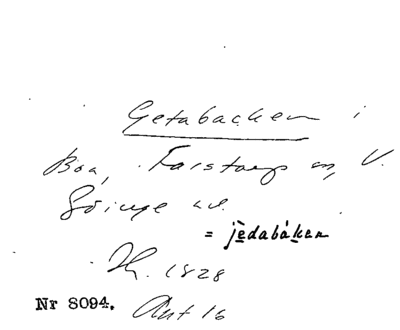 Getabacken i
Boa, Farstorps sn, V.
Göinge hd.
= jedabákan
Th. 1828
Nr 8094. Ant 16